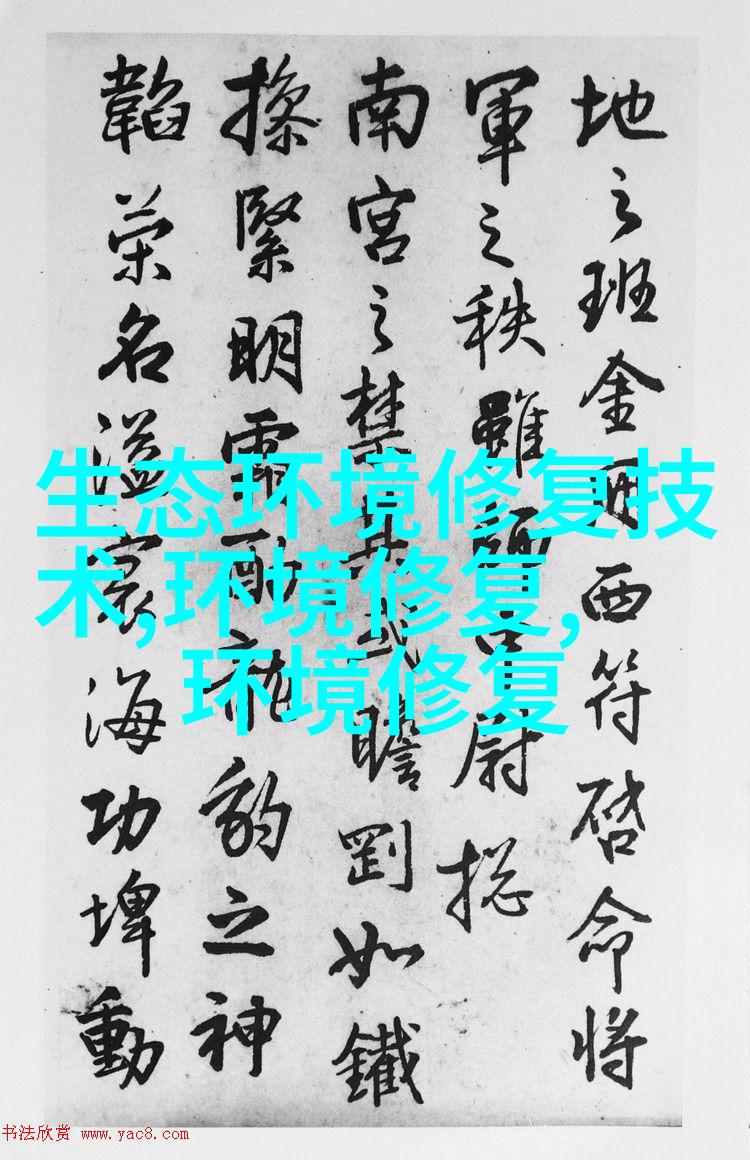 地之班金西符啓命将
軍之秩雖尉捴
南宮之禁式瞻剛如鐵
操緊明霜龍豹之神
韜榮名溢寰海功埤動
生态环境修复技
术,环境修复,
环境修复
书法欣赏 www.yac8.com